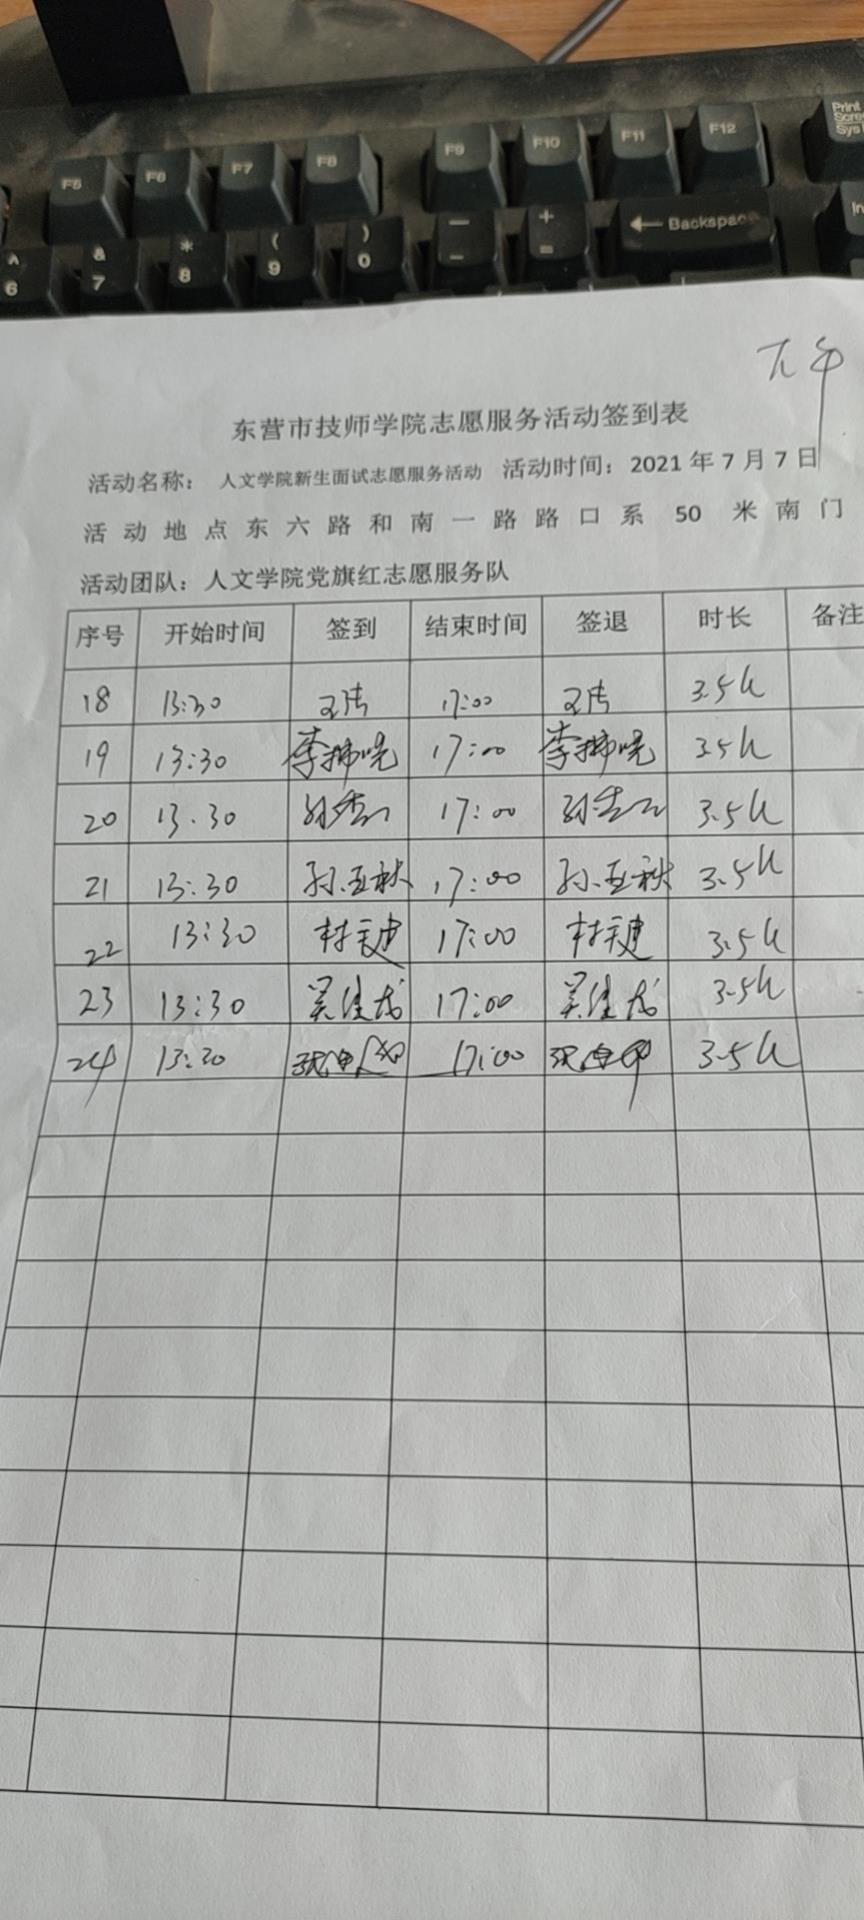 F5 F6 F7 F8 F9 F10 F11 F12 Print
Scre
Sys
^ & * ( ) — + ← Backspace In
6 7 8 9 0 - =
下午
东营市技师学院志愿服务活动签到表
活动名称： 人文学院新生面试志愿服务活动 活动时间：2021年7月7日
活动地点东六路和南一路路口系 50 米南门
活动团队：人文学院党旗红志愿服务队
序号 开始时间 签到 结束时间 签退 时长 备注
18 13:30 17:00 3.5h
19 13:30 17:00 3.5h
20 13.30 17:00 3.5h
21 13:30 孙亚秋 17:00 孙亚秋 3.5h
22 13:30 17:00 3.5h
23 13:30 吴佳龙 17:00 吴佳龙 3.5h
24 13:30 17:00 3.5h